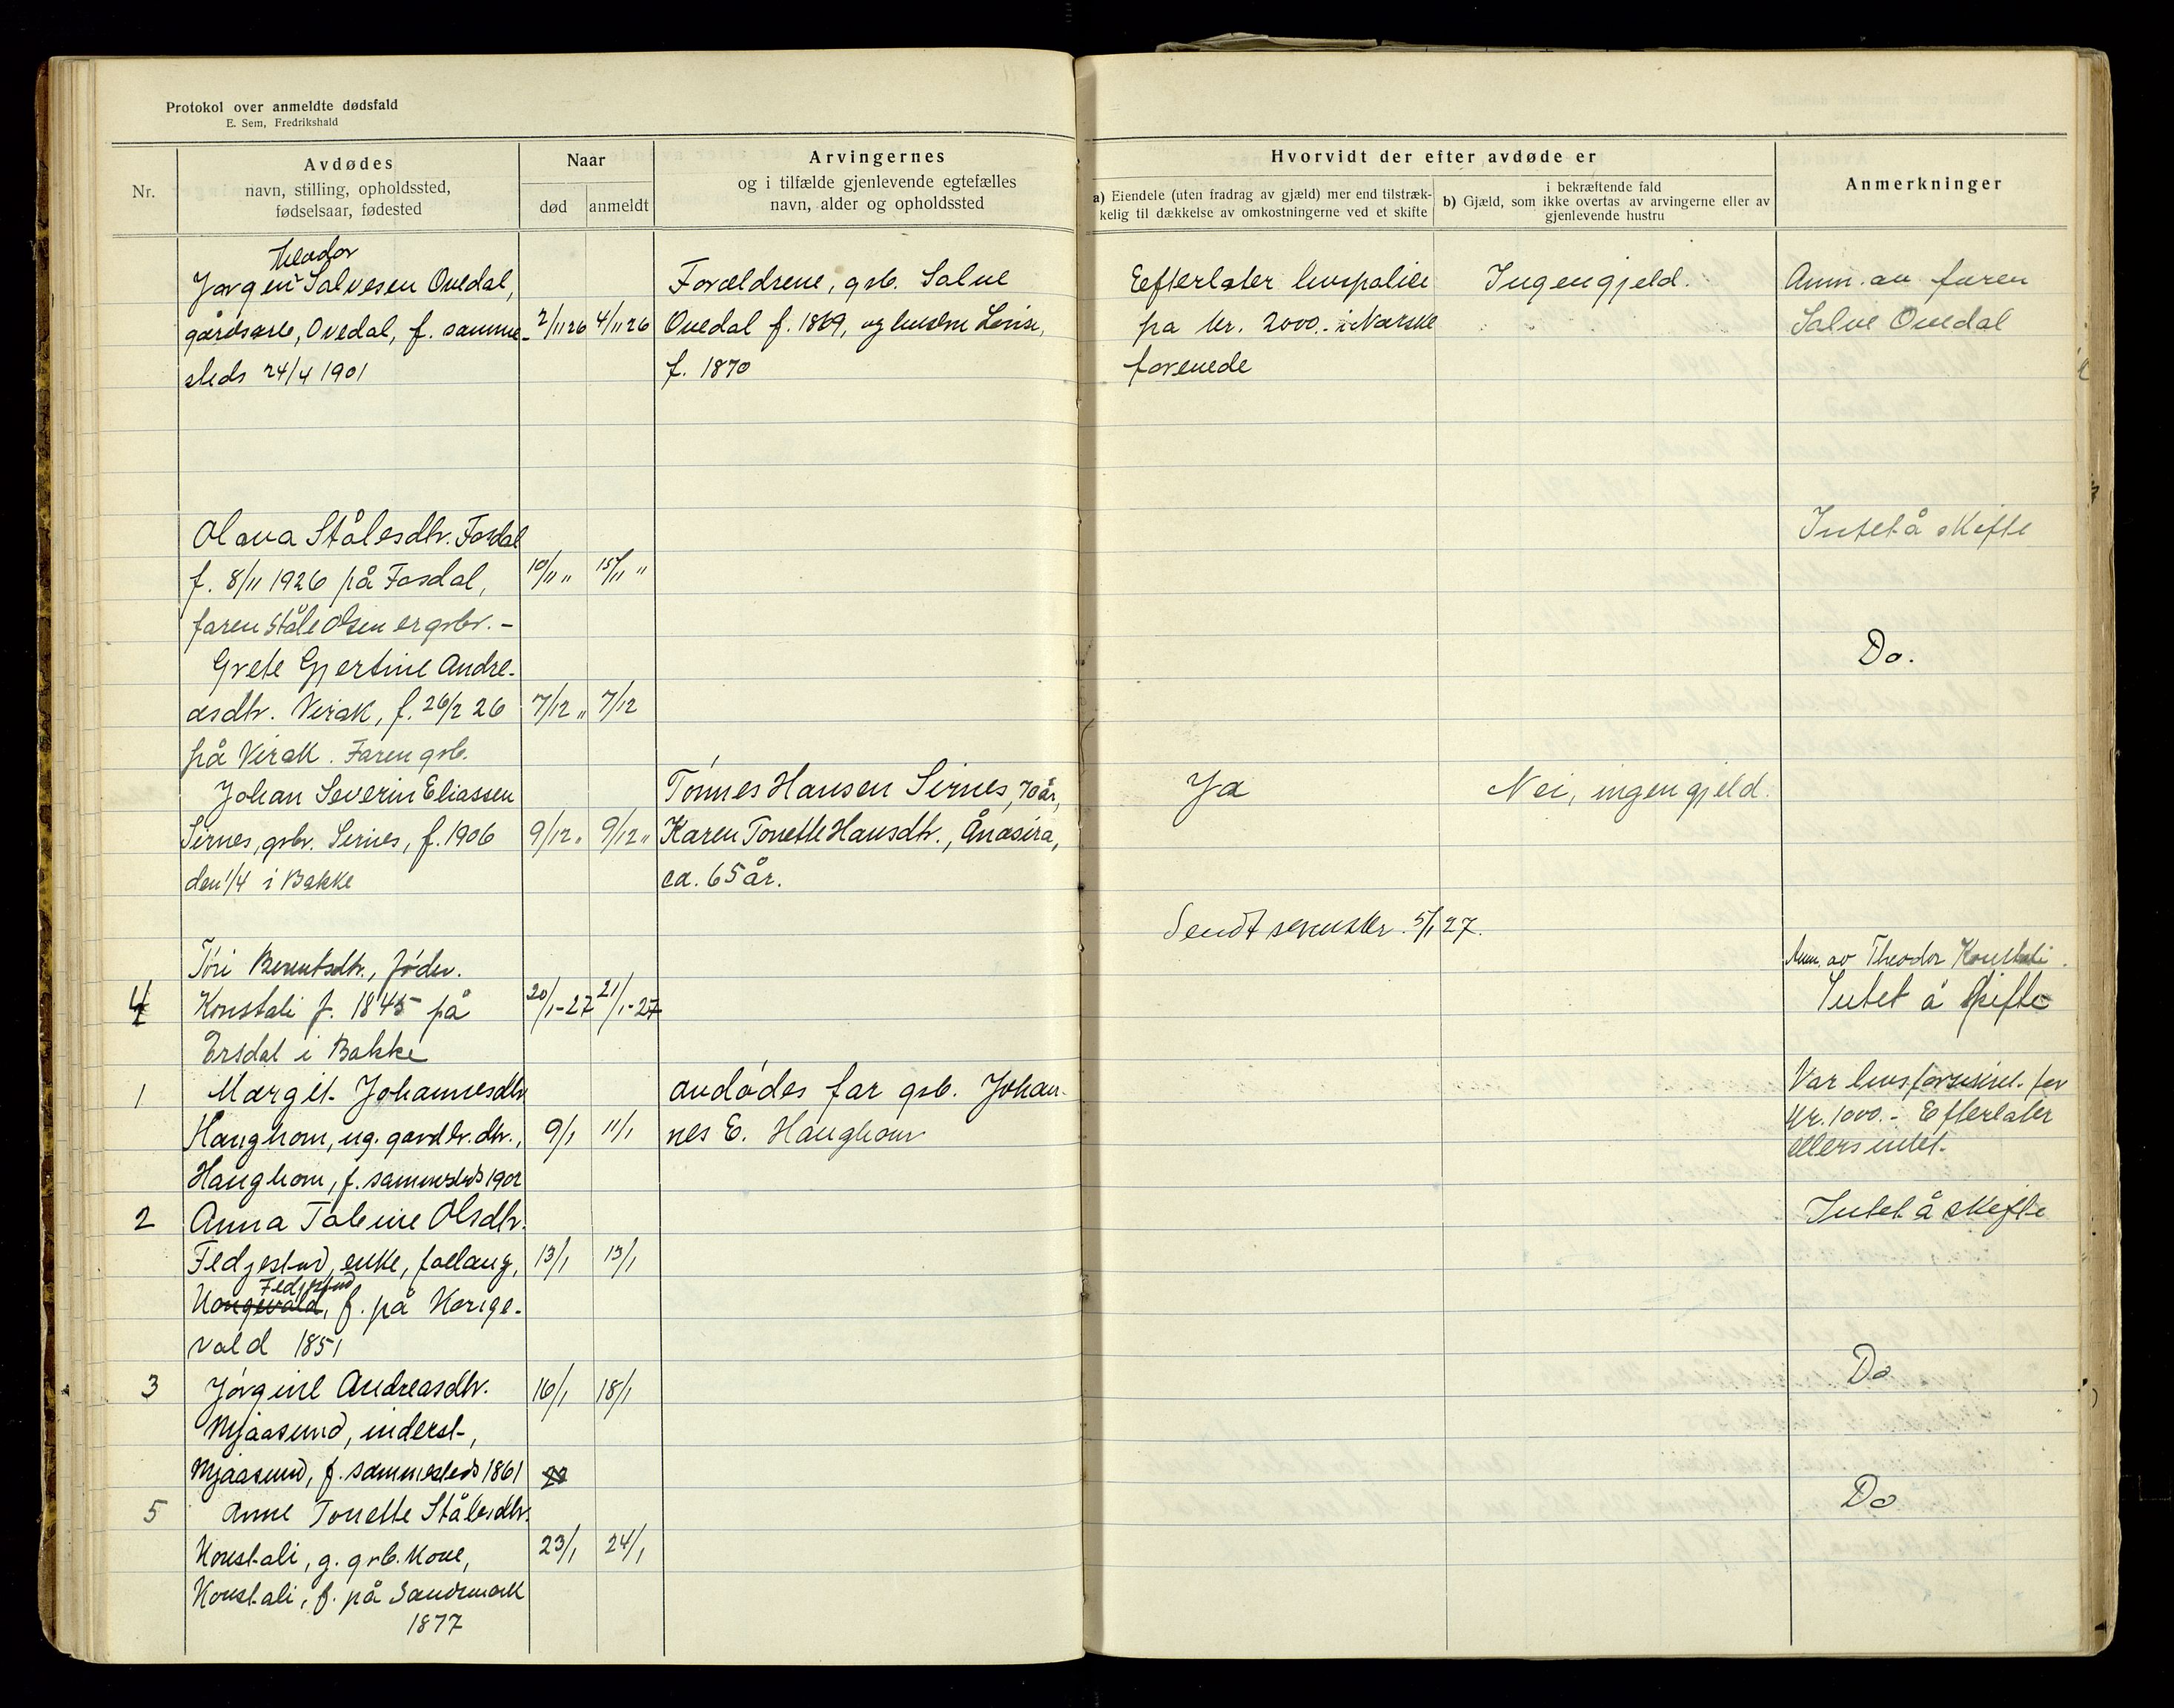 Protokol over anmeldte dødsfald
E. Sem, Fredrikshald
Nr.
Avdødes
navn, stilling, opholdssted,
fødselsaar, fødested
Naar
død
anmeldt
Arvingernes
og i tilfælde gjenlevende egtefælles
navn, alder og opholdssted
Hvorvidt der efter avdøde er
a) Eiendele (uten fradrag av gjæld) mer end tilstræk-
kelig til dækkelse av omkostningerne ved et skifte
i bekræftende fald
b) Gjæld, som ikke overtas av arvingerne eller av
gjenlevende hustru
Anmerkninger
Theodor
Jørgen Salvesen Ovedal,
gårdsarb, Ovedal, f. samme-
steds 24/4 1901
2/11 26
4/11 26
Forældrene, gsb. Salve
Ovedal f. 1869, og hustru Lovise,
f. 1870
Eefterlater livspolice
på kr. 2000.- i Norske
forenede
Ingen gjeld.
Anm. av faren
Salve Ovedal
Olava Stålesdtr. Fosdal
f. 8/11 1926 på Fosdal,
faren Ståle Olsen er gsbr. -
10/11 "
15/11 "
Intet å skifte
Grete Gjertine Andre-
asdtr. Virak, f. 26/2 26
på Virak. Faren gsb.
7/12 "
7/12
Do.
Johan Severin Eliassen
Sirnes, gsbr. Sirnes, f. 1906
den 1/4 i Bakke
9/12 "
9/12 "
Tønnes Hansen Sirnes, 70 år,
Karen Tonette Hansdtr., Ånasira,
ca. 65 år.
Ja
Nei, ingen gjeld.
Sendt sorenskr. 5/1 27.
4
Tóri Berentsdtr., föder.
Konstali f. 1845 på
Ersdal i Bakke
20/1-27
21/1-27
Anm. av Theodor Konstali.
Intet å skifte
1
Margit Johannesdtr
Haughom, ug. gardbr. dtr.,
Haughom, f. sammesteds 1902
9/1
11/1
avdødes far gsb. Johan-
nes E. Haughom
Var livsforsikret for
kr. 1000.- Efterlater
ellers intet.
2
Anna Tobine Olsdtr.
Fedjestad, enke,
Fedjestad
Kongevald, f. på Konge-
vald 1851
13/1
13/1
Intet å skifte
3
Jørgine Andreasdtr.
Mjaasund, inderst,
Mjaasund, f. sammesteds 1861
16/1
18/1
Do
5
Anne Tonette Ståledtr.
Konstali, g. gsb. kone,
Konstali, f. på Sandsmark
1877
23/1
24/1
Do